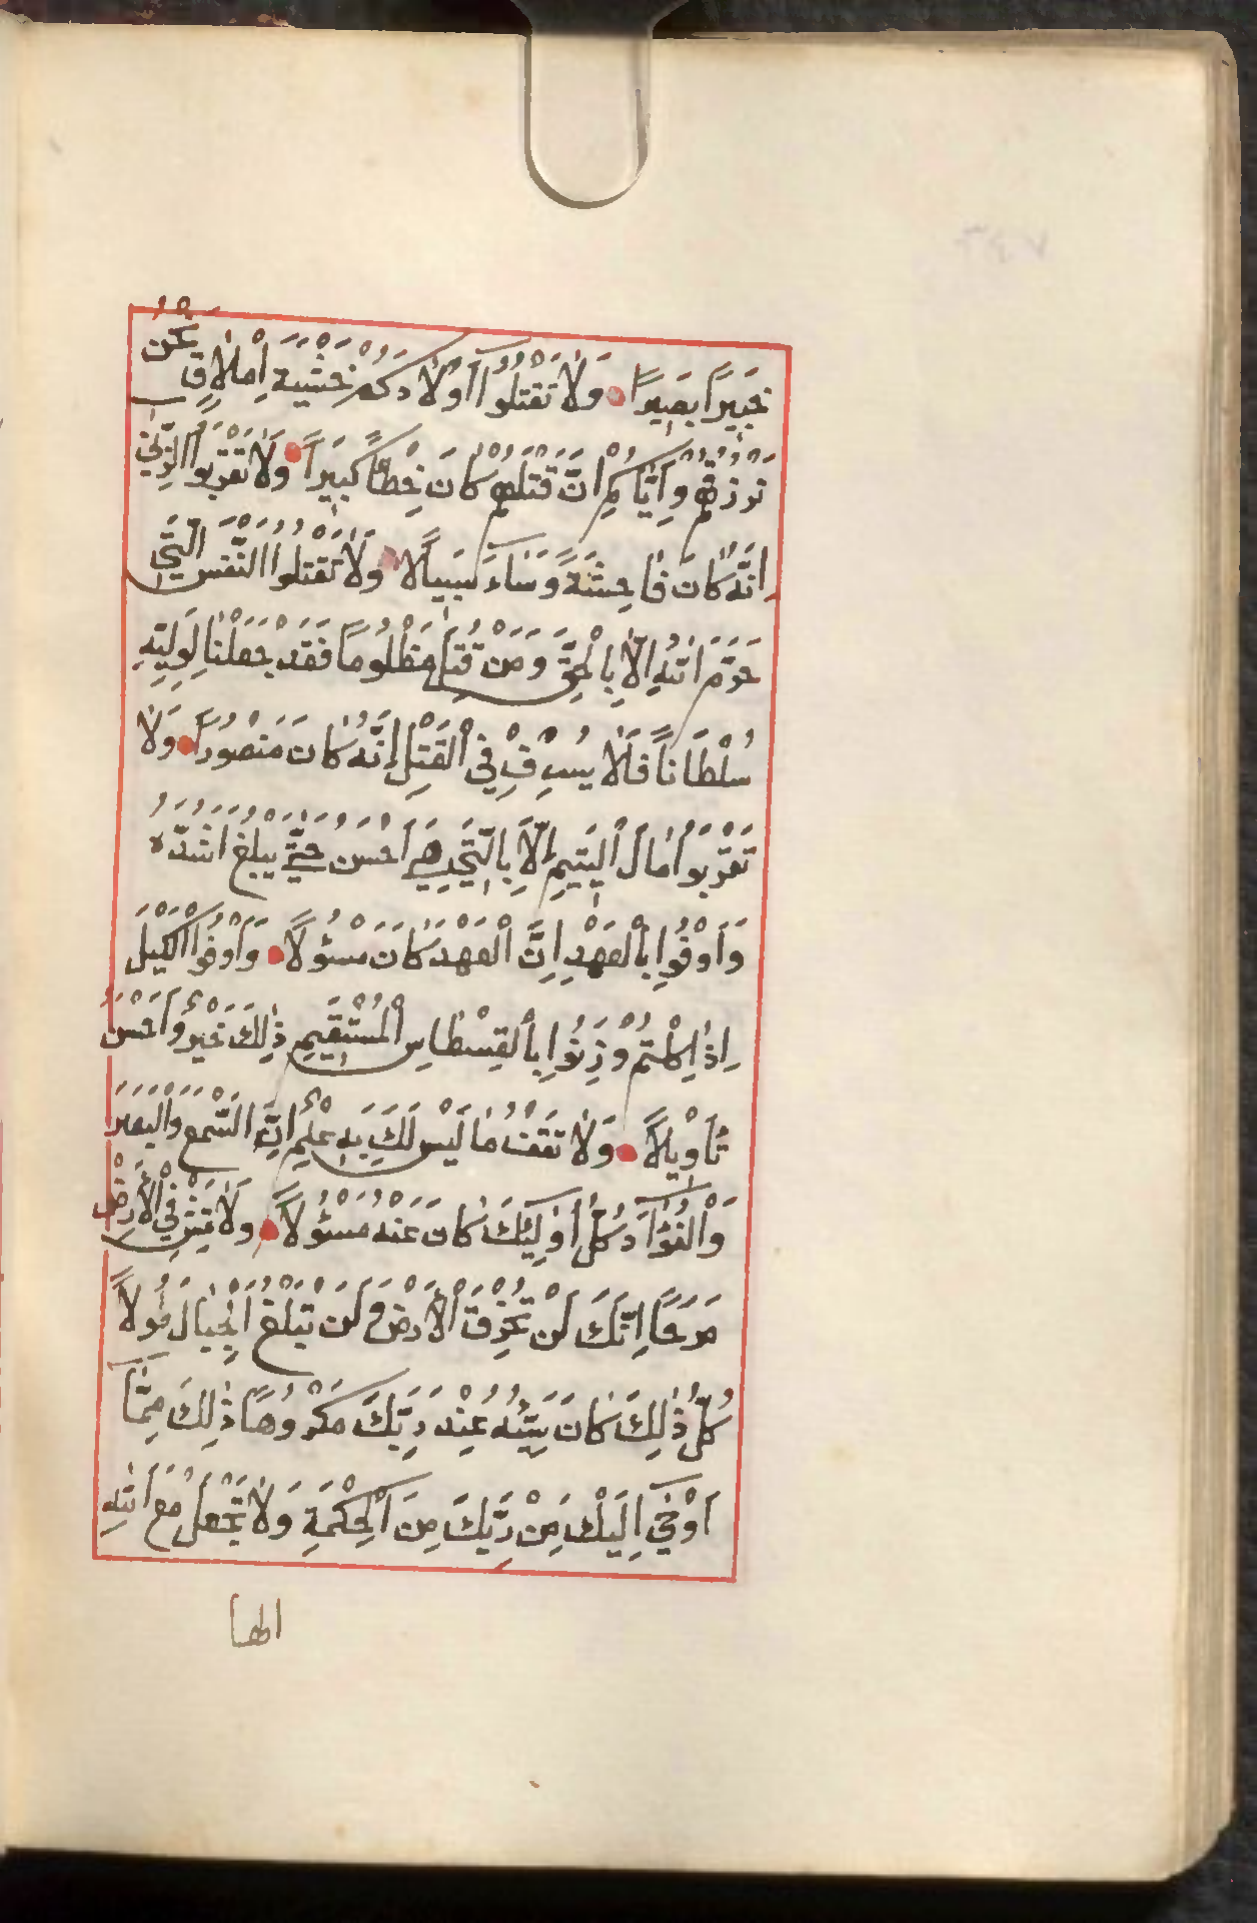 خَبِيرًا بَصِيرًا وَلَا تَقْتُلُوا أَوْلَادَكُمْ خَشْيَةَ إِمْلَاقٍ نَحْنُ
نَرْزُقُهُمْ وَإِيَّاكُمْ إِنَّ قَتْلَهُمْ كَانَ خِطْأً كَبِيرًا وَلَا تَقْرَبُوا الزِّنَى
إِنَّهُ كَانَ فَاحِشَةً وَسَاءَ سَبِيلًا وَلَا تَقْتُلُوا النَّفْسَ الَّتِي
حَرَّمَ اللَّهُ إِلَّا بِالْحَقِّ وَمَنْ قُتِلَ مَظْلُومًا فَقَدْ جَعَلْنَا لِوَلِيِّهِ
سُلْطَانًا فَلَا يُسْرِفْ فِي الْقَتْلِ إِنَّهُ كَانَ مَنْصُورًا وَلَا
تَقْرَبُوا مَالَ الْيَتِيمِ إِلَّا بِالَّتِي هِيَ أَحْسَنُ حَتَّى يَبْلُغَ أَشُدَّهُ
وَأَوْفُوا بِالْعَهْدِ إِنَّ الْعَهْدَ كَانَ مَسْئُولًا وَأَوْفُوا الْكَيْلَ
إِذَا كِلْتُمْ وَزِنُوا بِالْقِسْطَاسِ الْمُسْتَقِيمِ ذَلِكَ خَيْرٌ وَأَحْسَنُ
تَأْوِيلًا وَلَا تَقْفُ مَا لَيْسَ لَكَ بِهِ عِلْمٌ إِنَّ السَّمْعَ وَالْبَصَرَ
وَالْفُؤَادَ كُلُّ أُولَئِكَ كَانَ عَنْهُ مَسْئُولًا وَلَا تَمْشِ فِي الْأَرْضِ
مَرَحًا إِنَّكَ لَنْ تَخْرِقَ الْأَرْضَ وَلَنْ تَبْلُغَ الْجِبَالَ طُولًا
كُلُّ ذَلِكَ كَانَ سَيِّئُهُ عِنْدَ رَبِّكَ مَكْرُوهًا ذَلِكَ مِمَّا
أَوْحَى إِلَيْكَ مِنْ رَبِّكَ مِنَ الْحِكْمَةِ وَلَا تَجْعَلْ مَعَ اللَّهِ
الها